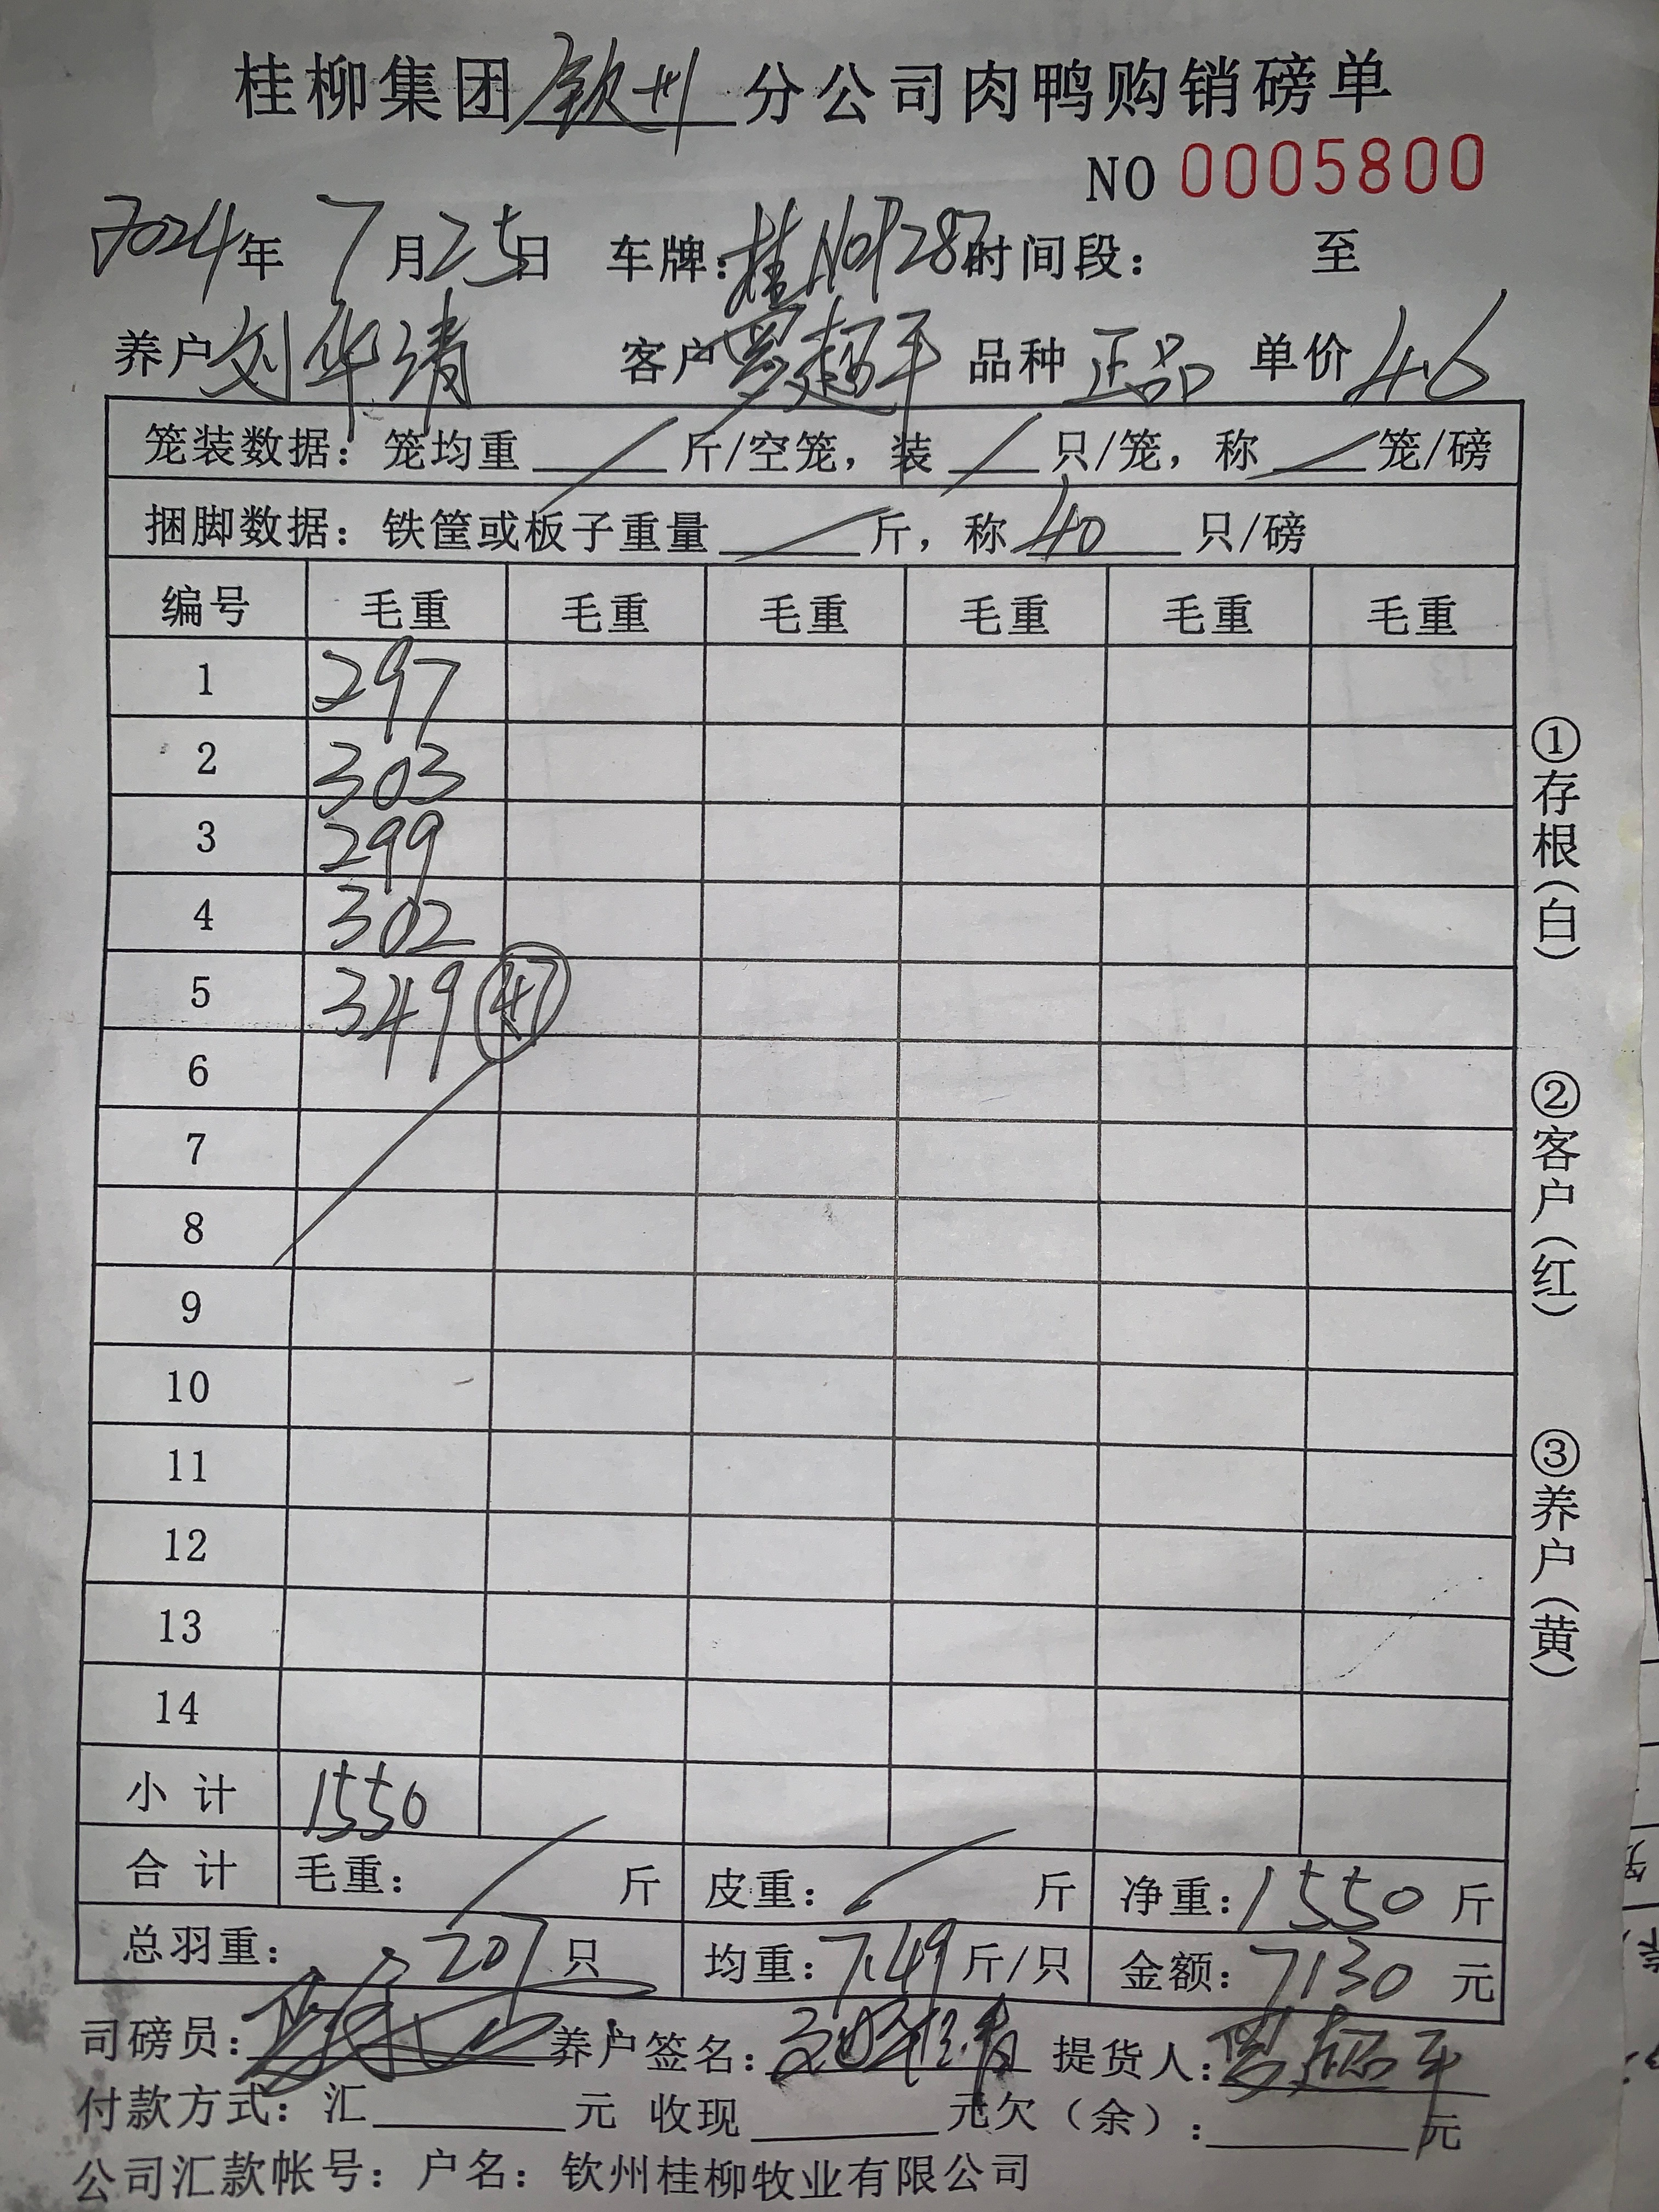 桂柳集团钦州分公司肉鸭购销磅单
NO 0005800
2024年7月25日 车牌:桂N01287时间段: 至
养户刘华清 客户罗超平 品种正品 单价4.6
笼装数据:笼均重/斤/空笼,装/只/笼,称/笼/磅
捆脚数据:铁筐或板子重量/斤,称40只/磅
编号 毛重 毛重 毛重 毛重 毛重 毛重
1 297
2 303
3 299
4 302
5 349 47
6
7
8
9
10
11
12
13
14
小计 1550
合计 毛重:/斤 皮重:/斤 净重:1550斤
总羽重:207只 均重:7.49斤/只 金额:7130元
司磅员: 养户签名: 提货人:罗超平
付款方式:汇 元 收现 元欠(余): 元
公司汇款帐号:户名:钦州桂柳牧业有限公司
①存根(白)
②客户(红)
③养户(黄)